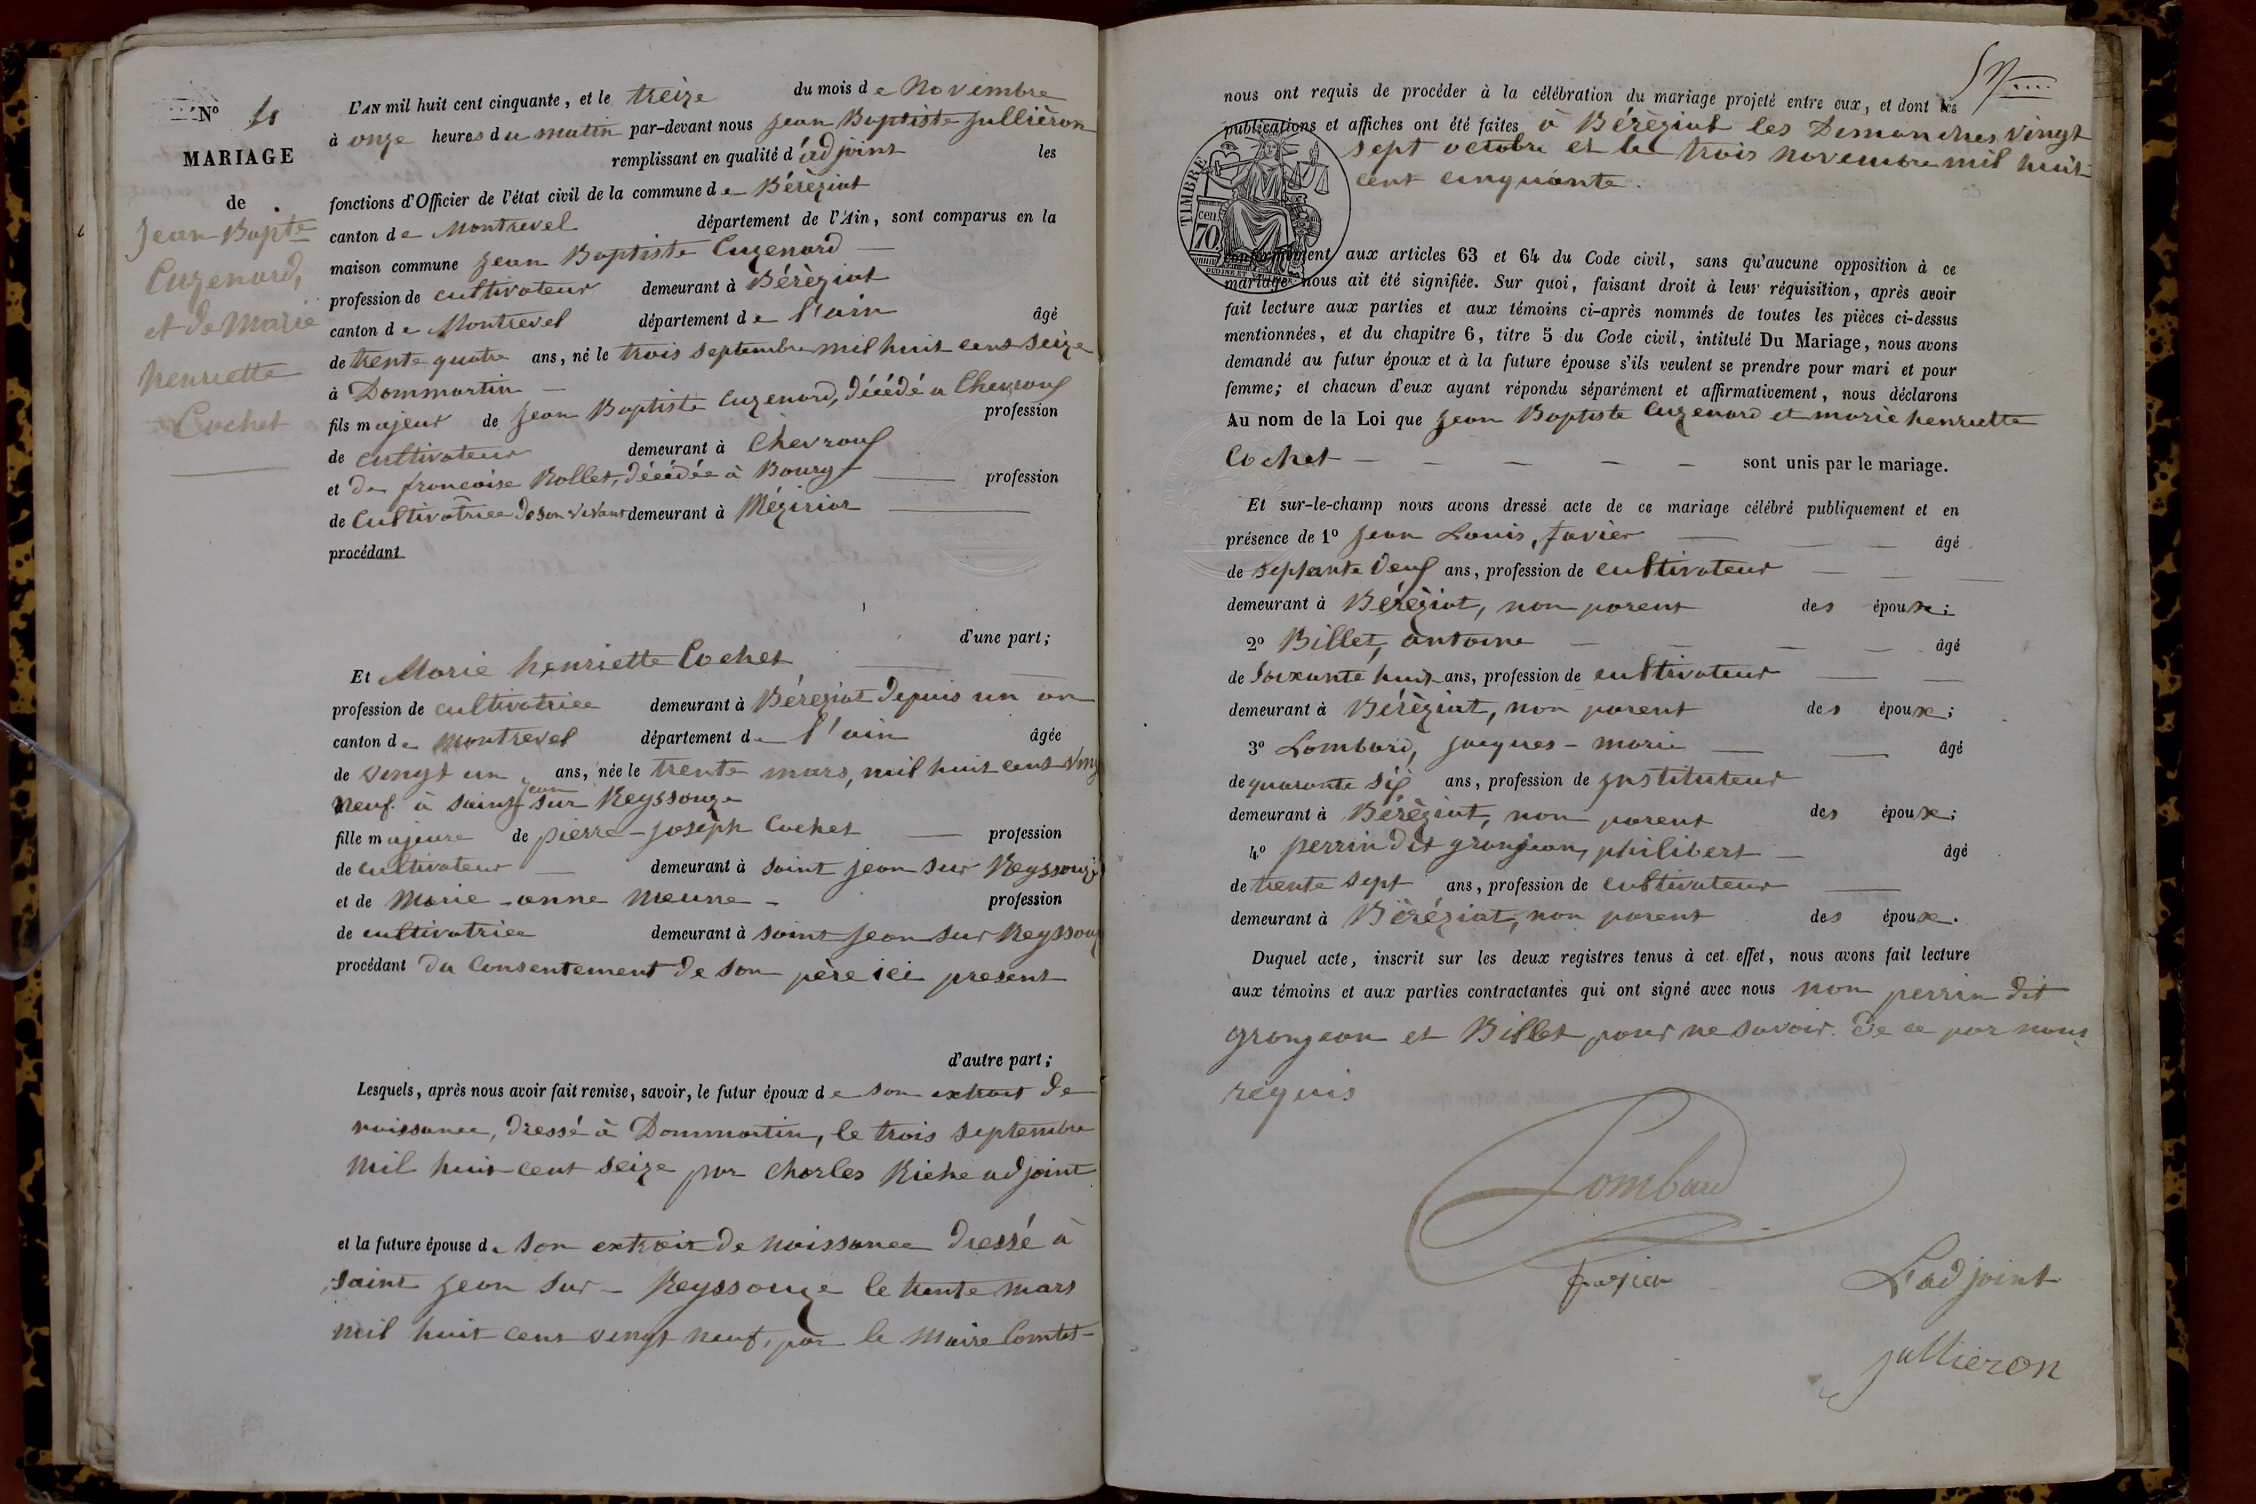 N° 4
MARIAGE
de
Jean Bapte
Cuzenard,
et de Marie
henriette
Cochet
L'AN mil huit cent cinquante, et le treize du mois de Novembre
à onze heures du matin par-devant nous Jean Baptiste Jullièron
remplissant en qualité d'adjoint les
fonctions d'Officier de l'état civil de la commune de Béréziat
canton de Montrevel département de l'Ain, sont comparus en la
maison commune Jean Baptiste Cuzenard
profession de cultivateur demeurant à Béréziat
canton de Montrevel département de l'ain âgé
de trente quatre ans, né le trois septembre mil huit cent seize
à Dommartin
fils majeur de Jean Baptiste Cuzenard, décédé a Chevroux profession
de cultivateur demeurant à Chevroux
et de francoise Rollet, décédée à Bourg profession
de Cultivatrice de son vivant demeurant à Mégirias
procédant
d'une part;
Et Marie henriette Cochet
profession de cultivatrice demeurant à Béréziat depuis un an
canton de Montrevel département de l'ain âgée
de vingt un ans, née le trente mars, mil huit cent ving
neuf à saint jean sur Reyssouze
fille majeure de pierre-joseph Cochet profession
de cultivateur demeurant à saint jean sur Reyssouze
et de Marie-anne Meune profession
de cultivatrice demeurant à saint jean sur Reyssouz
procédant du consentement de son père ici present
d'autre part;
Lesquels, après nous avoir fait remise, savoir, le futur époux de son extrait de
naissance, dressé à Dommartin, le trois septembre
mil huit cent seize par charles Riche adjoint
et la future épouse de son extrait de naissance dressé à
saint jean sur-Reyssouze le trente mars
mil huit cent vingt neuf, par le Maire Comtet
nous ont requis de procéder à la célébration du mariage projeté entre eux, et dont les
publications et affiches ont été faites à Béréziat les Dimanches vingt
sept octobre et le trois novembre mil huit
cent cinquante.
TIMBRE
cen
70
conformément aux articles 63 et 64 du Code civil, sans qu'aucune opposition à ce
mariage nous ait été signifiée. Sur quoi, faisant droit à leur réquisition, après avoir
fait lecture aux parties et aux témoins ci-après nommés de toutes les pièces ci-dessus
mentionnées, et du chapitre 6, titre 5 du Code civil, intitulé Du Mariage, nous avons
demandé au futur époux et à la future épouse s'ils veulent se prendre pour mari et pour
femme; et chacun d'eux ayant répondu séparément et affirmativement, nous déclarons
Au nom de la Loi que Jean Baptiste Cuzenard et marie henriette
Cochet sont unis par le mariage.
Et sur-le-champ nous avons dressé acte de ce mariage célébré publiquement et en
présence de 1° Jean Louis, favier âgé
de septante deux ans, profession de cultivateur
demeurant à Béréziat, non parent des époux;
2° Billet, antoine âgé
de soixante huit ans, profession de cultivateur
demeurant à Béréziat, non parent des époux;
3° Lombard, jacques-marie âgé
de quarante six ans, profession de jnstituteur
demeurant à Béréziat, non parent des époux;
4° perrin dit gronjean, philibert âgé
de trente sept ans, profession de cultivateur
demeurant à Béréziat, non parent des époux.
Duquel acte, inscrit sur les deux registres tenus à cet effet, nous avons fait lecture
aux témoins et aux parties contractantes qui ont signé avec nous non perrin dit
gronjean et Billet pour ne savoir. De ce par nous
requis
Lombard
favier
L'adjoint
jullieron